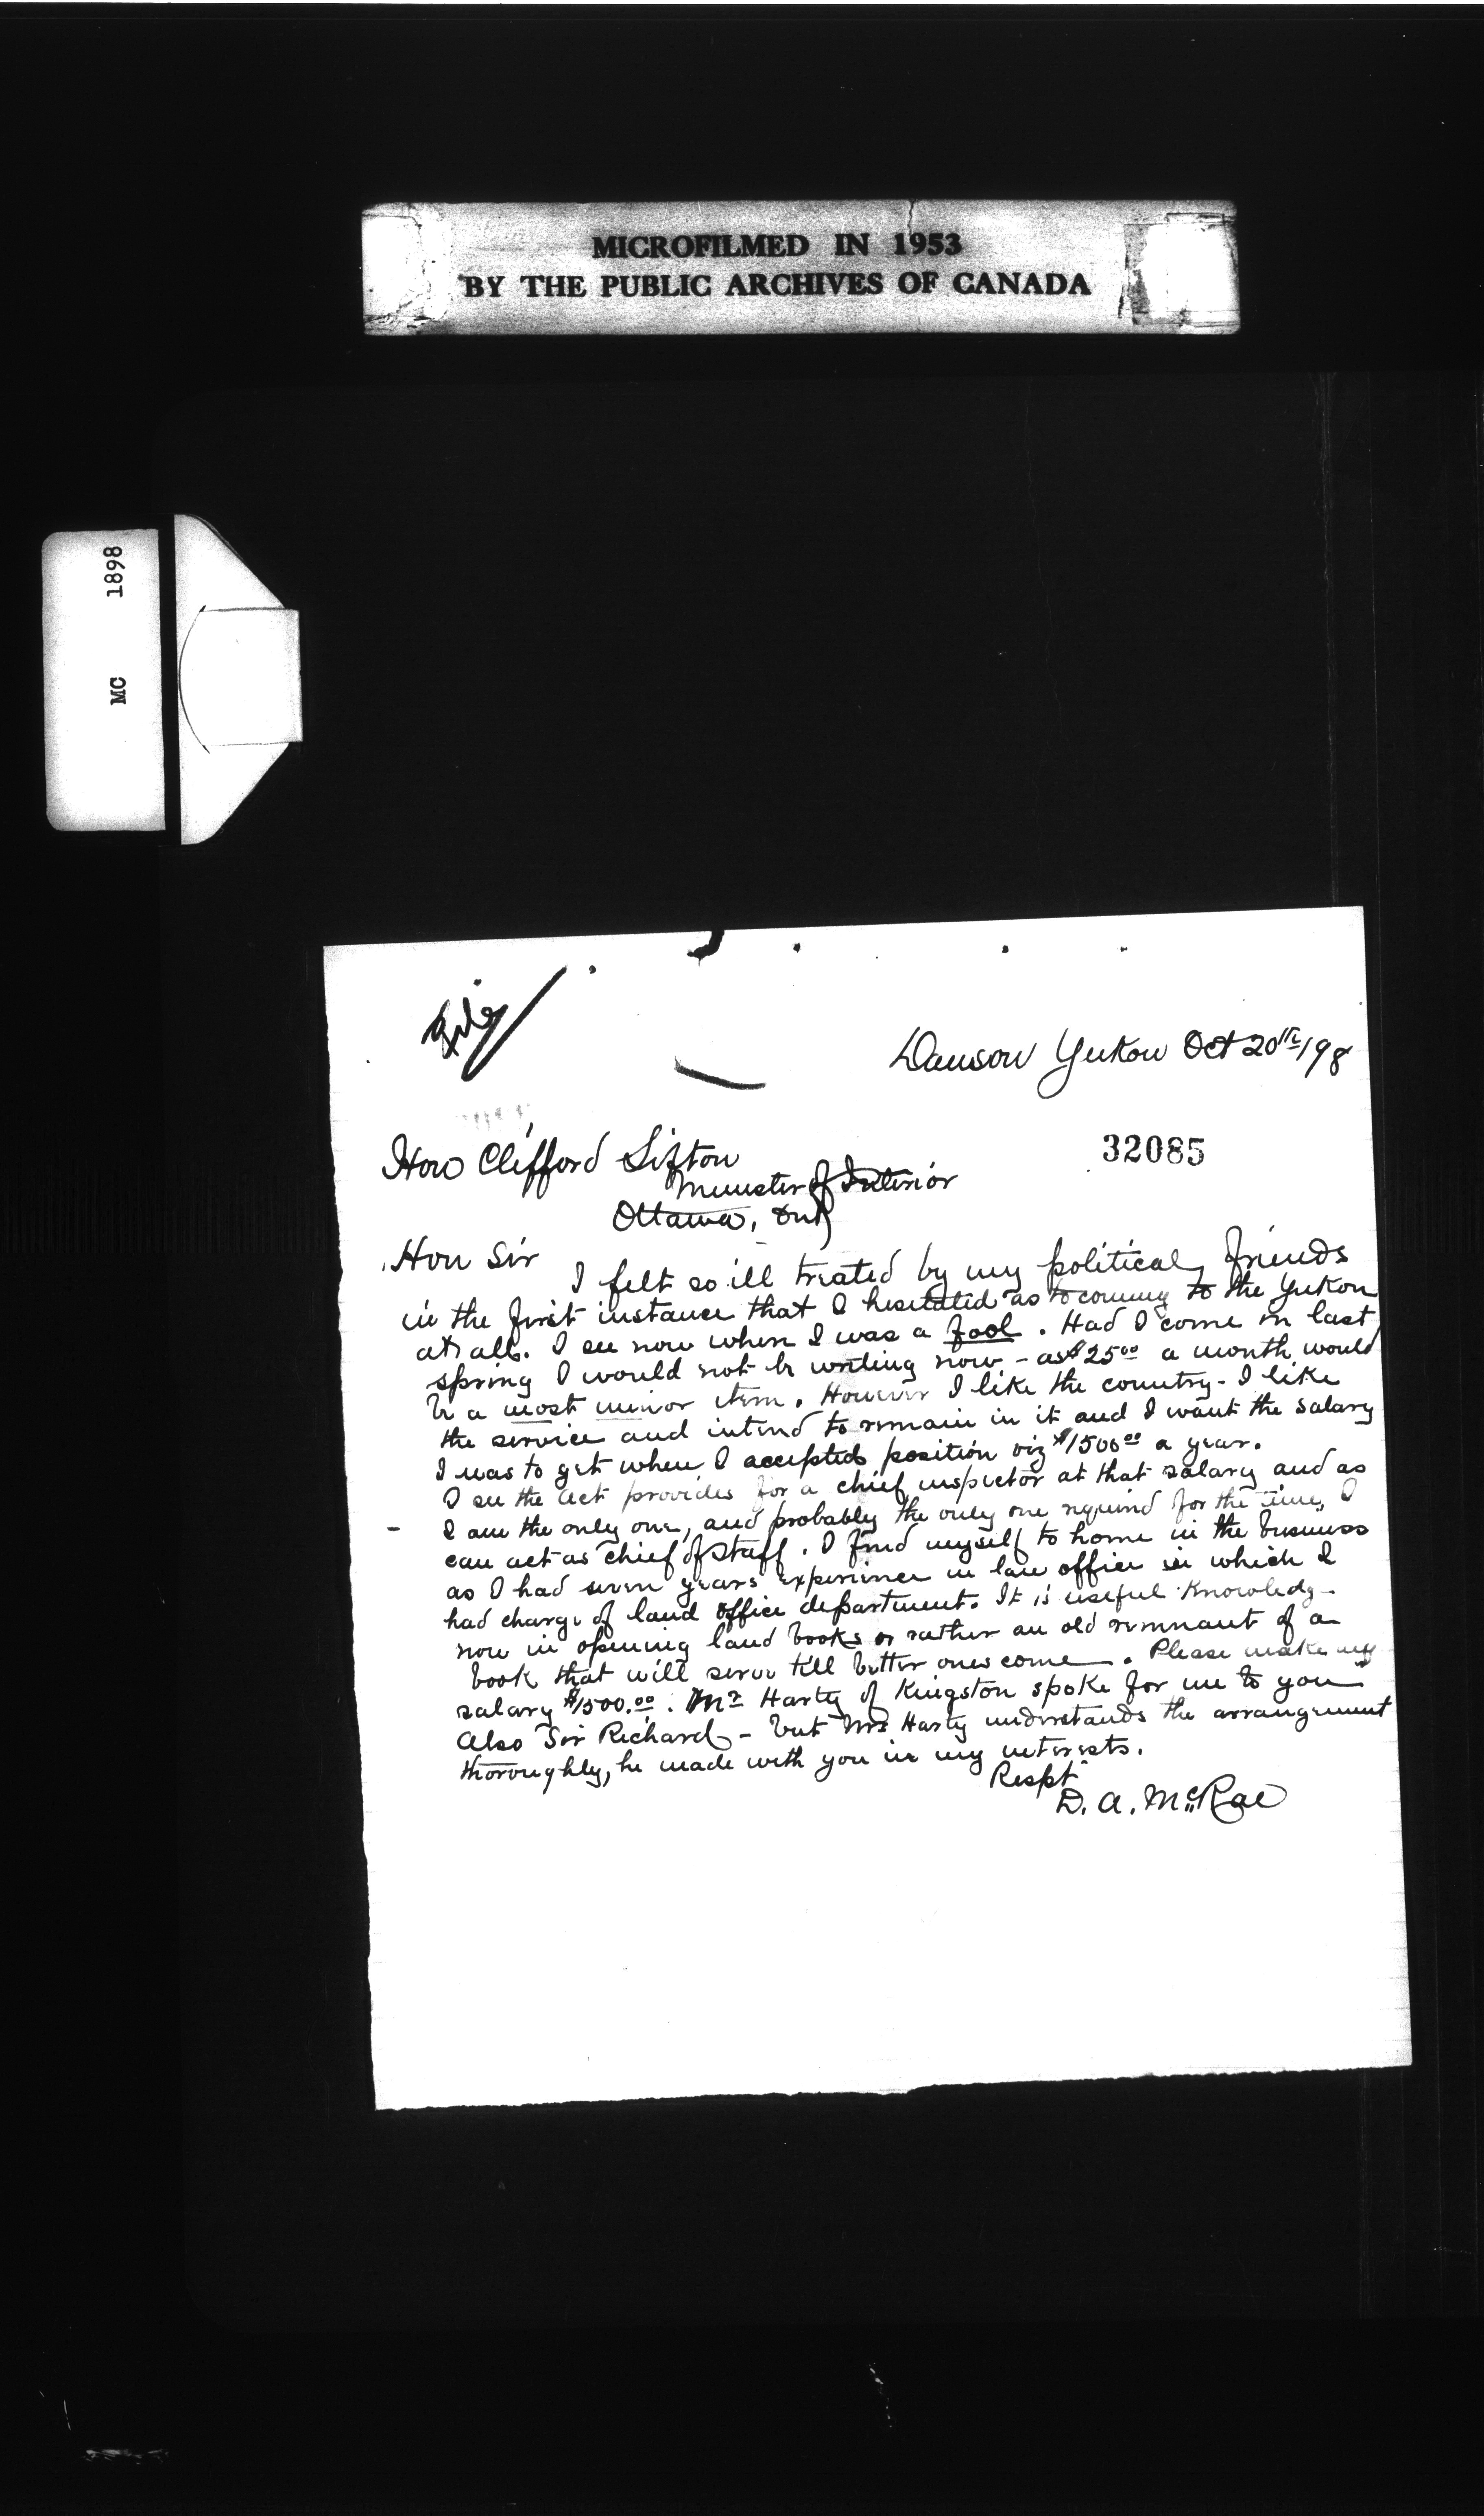 MICROFILMED IN 1953
BY THE PUBLIC ARCHIVES OF CANADA
MC 1898
File
Dawson Yukon Oct 20th/98
32085
Hon Clifford Sifton
Minister of Interior
Ottawa, Ont
Hon Sir
I felt so ill treated by my political friends
in the first instance that I hesitated as to coming to the Yukon
at all. I see now when I was a fool. Had I come in last
spring I would not be writing now - as $25.00 a month would
be a most minor item. However I like the country - I like
the service and intend to remain in it and I want the salary
I was to get when I accepted position viz $1500.00 a year.
I see the act provides for a chief inspector at that salary and as
I am the only one, and probably the only one required for the time, I
can act as chief of staff. I find myself to home in the business
as I had seven years experience in law office in which I
had charge of land office department. It is useful knowledge
now in opening land books or rather an old remnant of a
book that will serve till better ones come. Please make my
salary $1500.00. Mr Harty of Kingston spoke for me to you
Also Sir Richard - but Mr Harty understands the arrangement
thoroughly, he made with you in my interests.
Respt
D. A. McRae